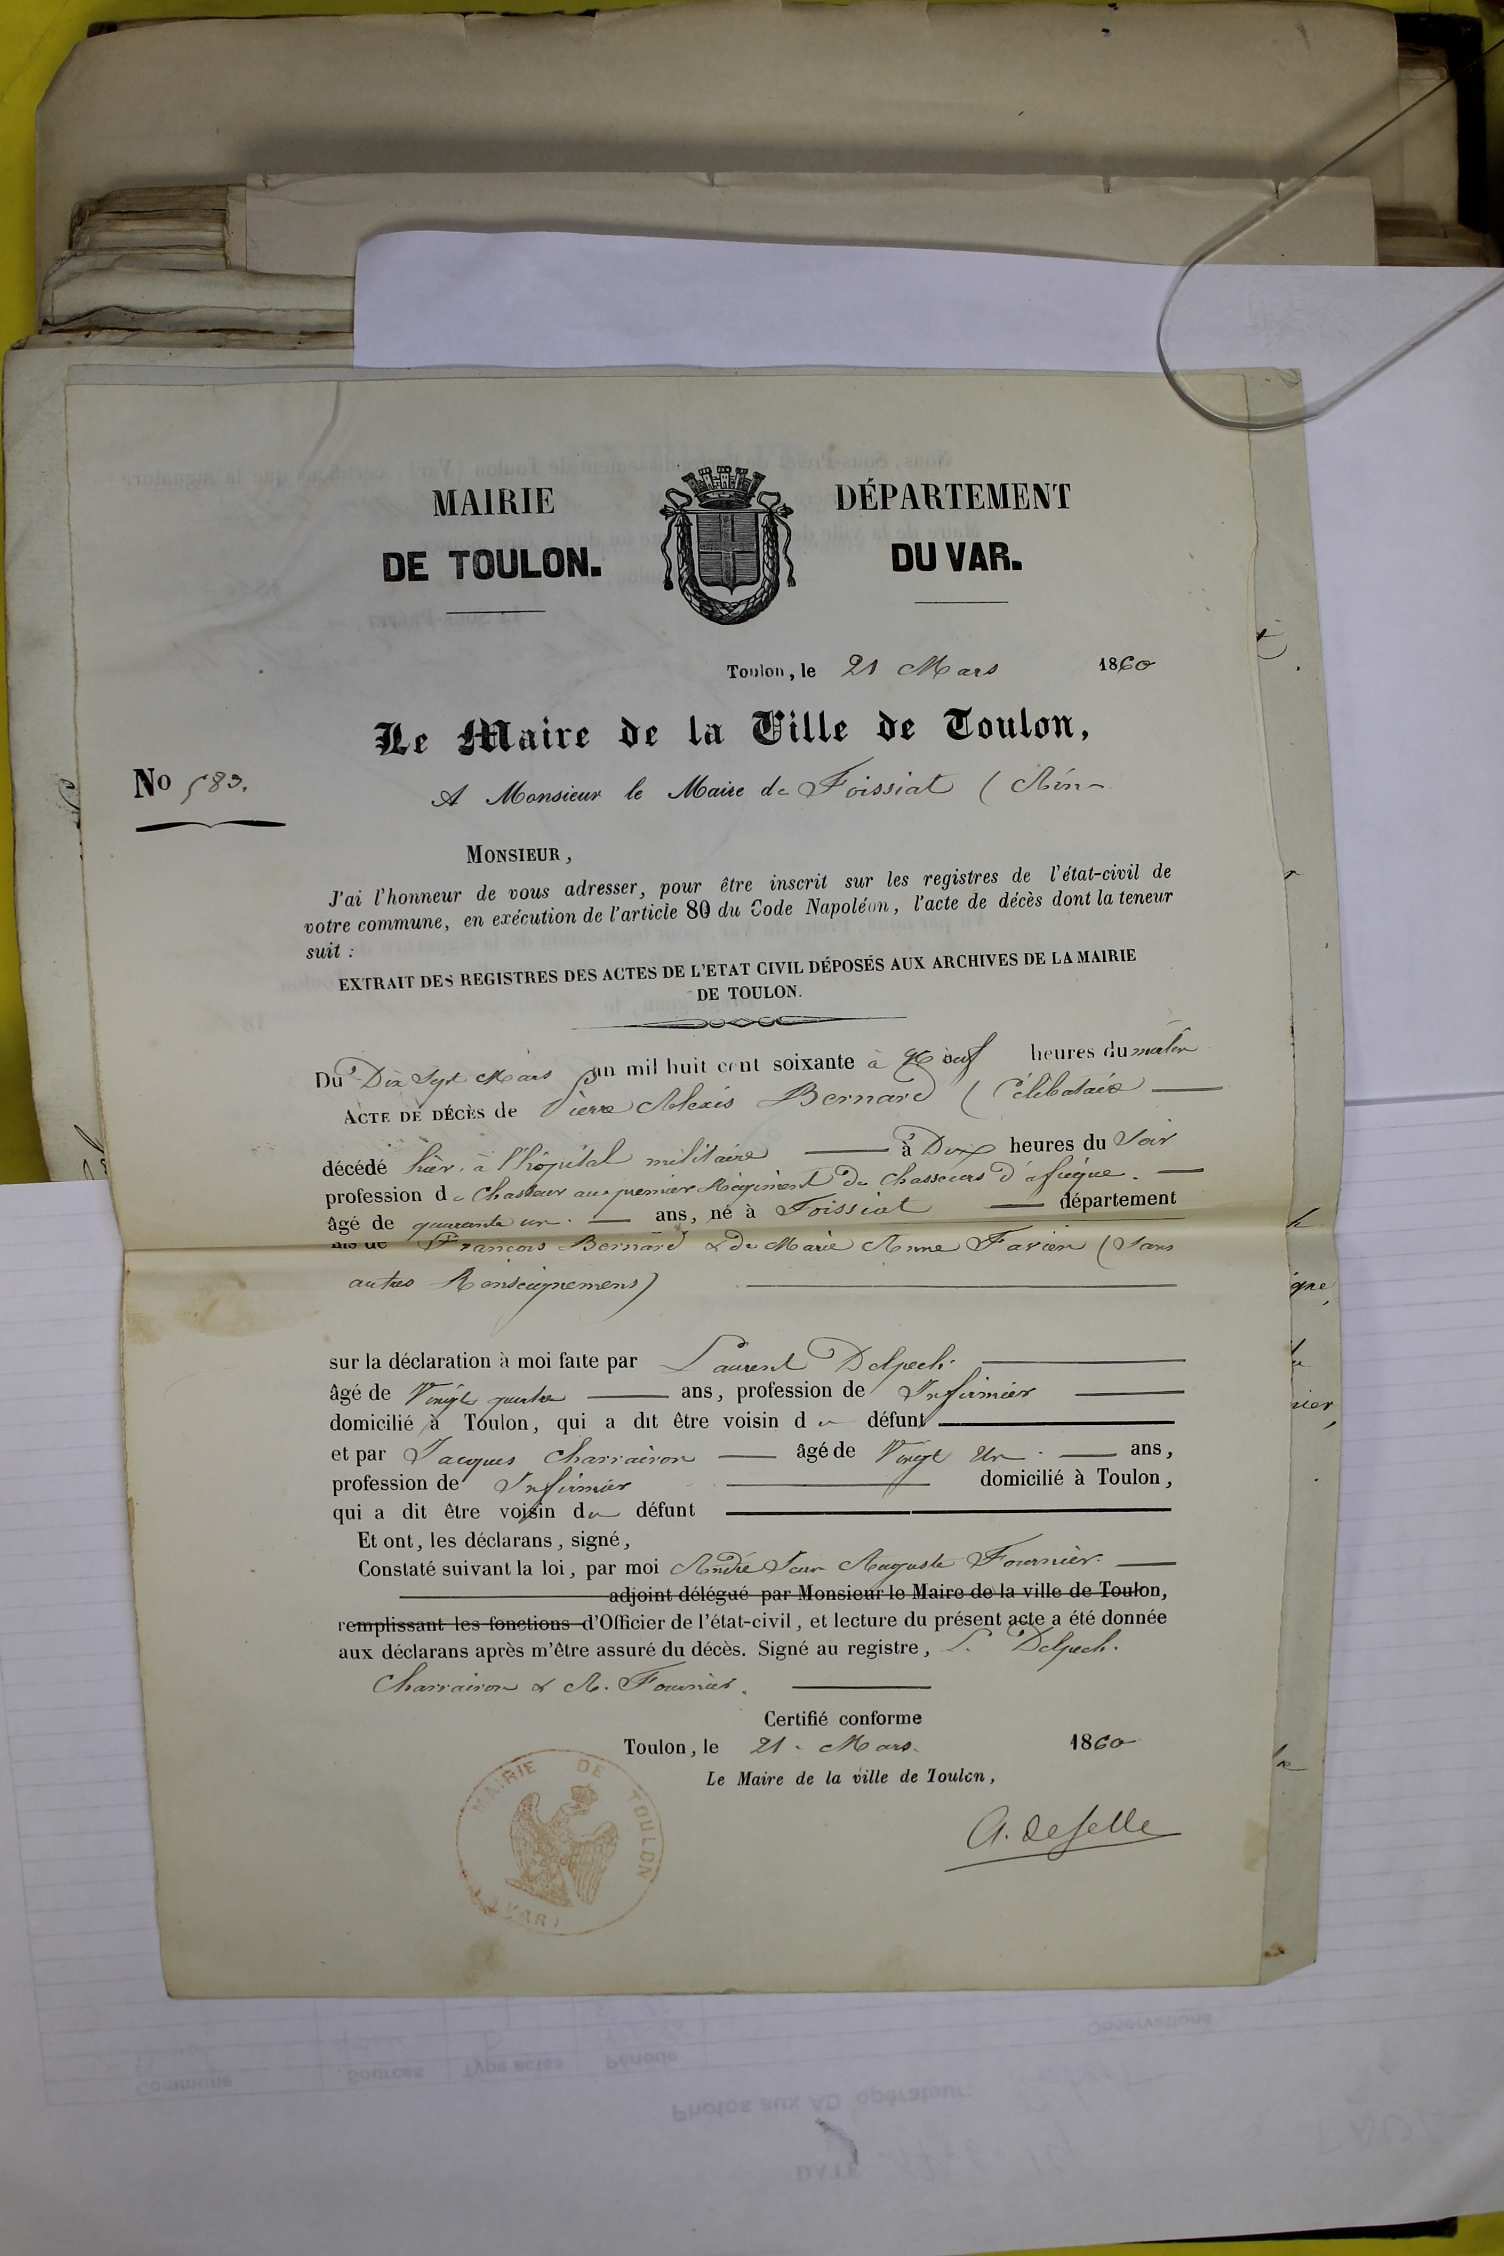 MAIRIE DÉPARTEMENT
DE TOULON. DU VAR.
Toulon, le 21 Mars 1860
Le Maire de la Ville de Toulon,
No 583.
A Monsieur le Maire de Foissiat (Ain
MONSIEUR,
J'ai l'honneur de vous adresser, pour être inscrit sur les registres de l'état-civil de
votre commune, en exécution de l'article 80 du Code Napoléon, l'acte de décès dont la teneur
suit :
EXTRAIT DES REGISTRES DES ACTES DE L'ETAT CIVIL DÉPOSÉS AUX ARCHIVES DE LA MAIRIE
DE TOULON.
Du Dix Sept Mars an mil huit cent soixante à Neuf heures du matin
ACTE DE DÉCÈS de Pierre Alexis Bernard (Célibataire
décédé hier à l'hôpital militaire à Dix heures du Soir
profession de Chasseur au premier Régiment de Chasseurs d'afrique.
âgé de quarante un ans, né à Foissiat département
fils de François Bernard & de Marie Anne Favier (Sans
autres Renseignemens)
sur la déclaration à moi faite par Laurent Delpech.
âgé de Vingt quatre ans, profession de Infirmier
domicilié à Toulon, qui a dit être voisin du défunt
et par Jacques Charrairon âgé de Vingt Un ans,
profession de Infirmier domicilié à Toulon,
qui a dit être voisin du défunt
Et ont, les déclarans, signé,
Constaté suivant la loi, par moi André Jean Auguste Fournier.
adjoint délégué par Monsieur le Maire de la ville de Toulon,
remplissant les fonctions d'Officier de l'état-civil, et lecture du présent acte a été donnée
aux déclarans après m'être assuré du décès. Signé au registre, L. Delpech.
Charrairon & A. Fournier.
Certifié conforme
Toulon, le 21 Mars 1860
Le Maire de la ville de Toulon,
A. Deselle
MAIRIE DE TOULON
(VAR)